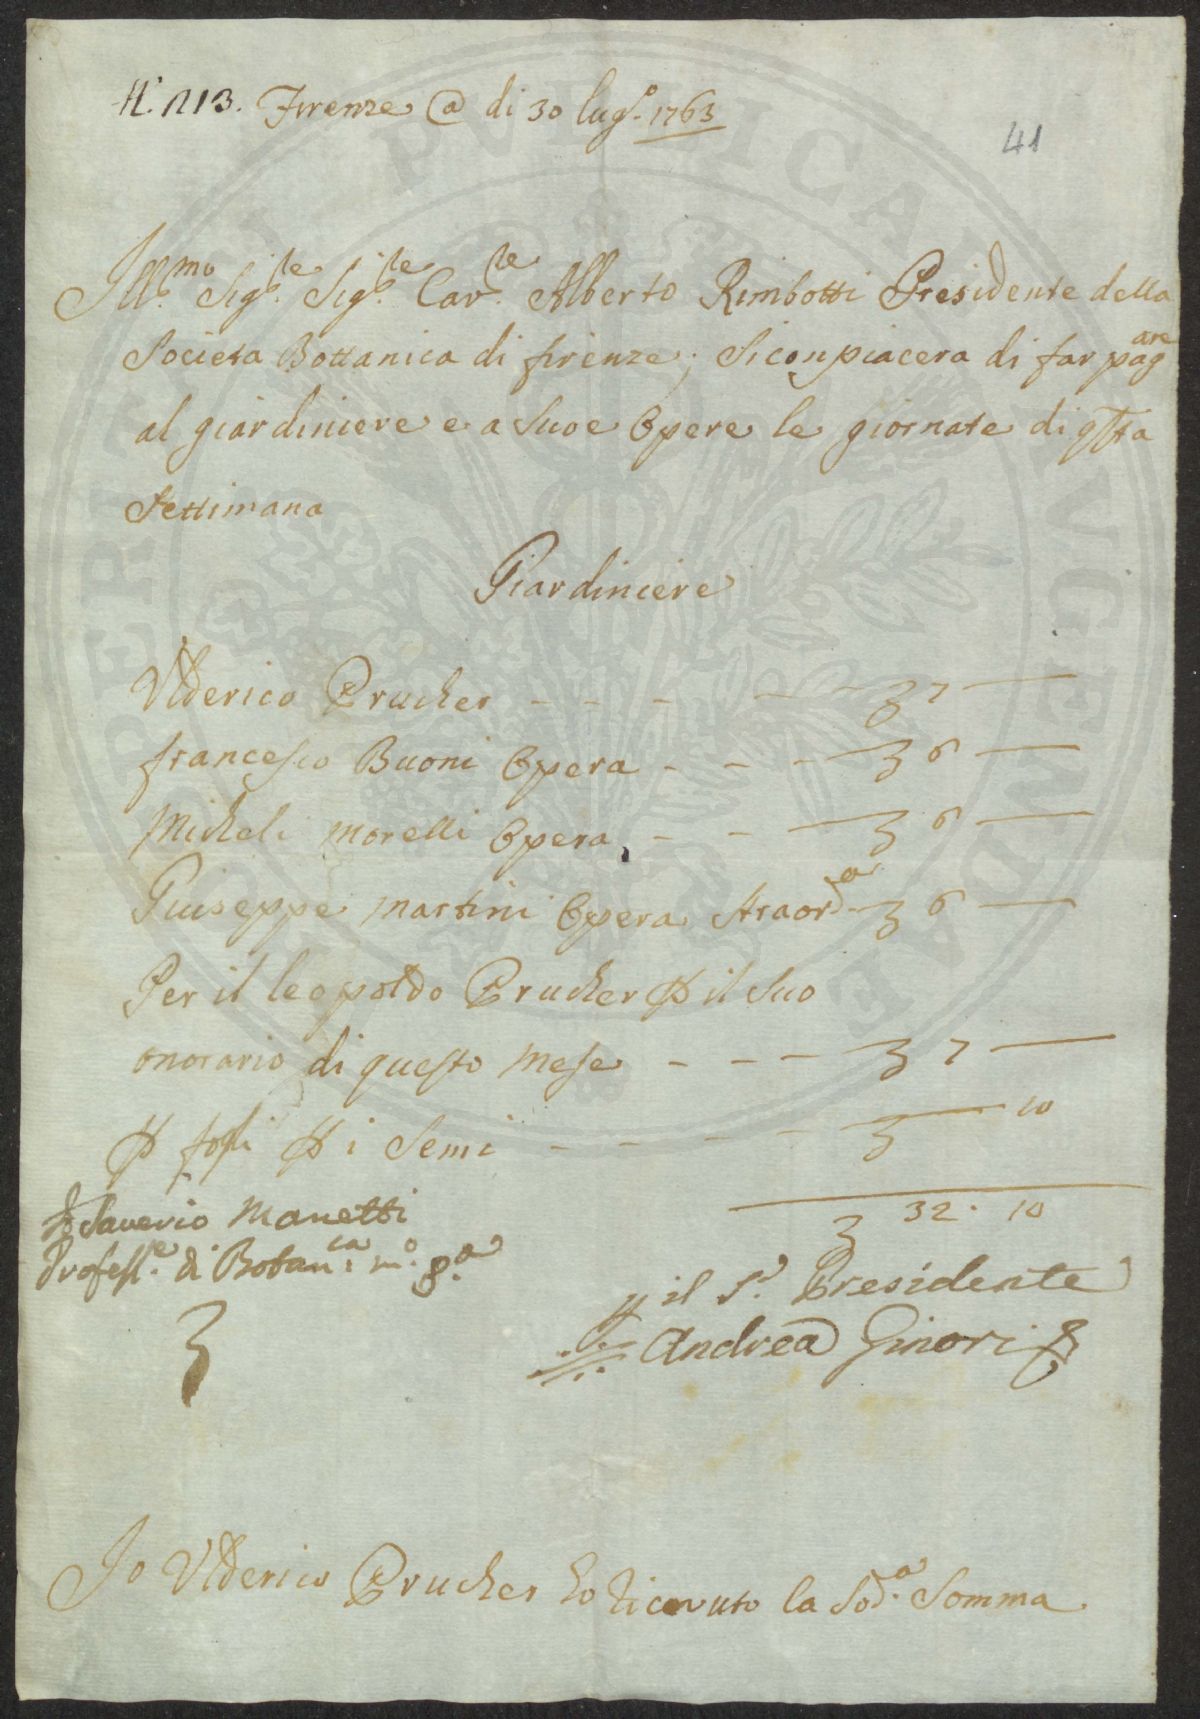 N.° 213. Firenze @ di 30 lug.° 1763
41
Ill.mo Sig.re Sig.re Cav.re Alberto Rimbotti Presidente della
Società Bottanica di firenze; Si conpiacera di far pagare
al giardiniere e a Suoe Opere le giornate di qsta
Settimana
Giardiniere
Ulderico Prucher - - - - - 7 —
francesco Buoni Opera - - - 6 —
Micheli Morelli Opera - - 6 —
Giuseppe Martini Opera Straord.a 6 —
Per il leopoldo Prucher p il Suo
onorario di questo Mese - - - 7 —
p fogli p i Semi - - - - — 10
32. 10
Saverio Manetti
Profess.e di Botan.ca m.o p.a
p il S.r Presidente
Andrea Ginori
Io Ulderico Prucher ho ricevuto la Sod.a Somma